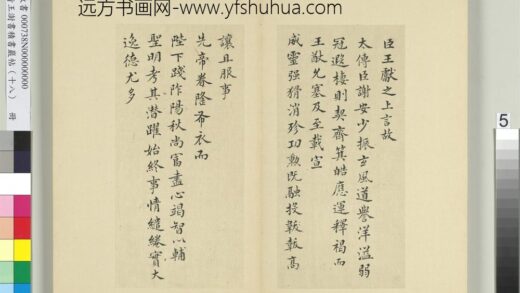 远方书画网-www.yfshuhua.com
臣王獻之上言故
太傅臣謝安少振玄風道譽洋溢弱
冠遐棲則契齊箕皓應運釋褐而
王猷允塞及至載宣
威靈强猾消殄功勲既融投韍歸高
讓且服事
先帝眷隆布衣而
陛下踐阼陽秋尚富盡心竭智以輔
聖明考其潛躍始終事情繾綣實大
逸德尤多
000738N00000000
5